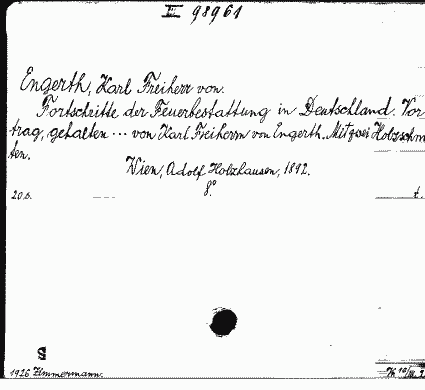 II 98961
Engerth, Karl Freiherr von.
Fortschritte der Feuerbestattung in Deutschland. Vor-
trag, gehalten ... von Karl Freiherrn von Engerth. Mit zwei Holzschn
ten.
Wien, Adolf Holzhausen, 1892.
8°
20 s. t.
S
1926 Zimmermann.